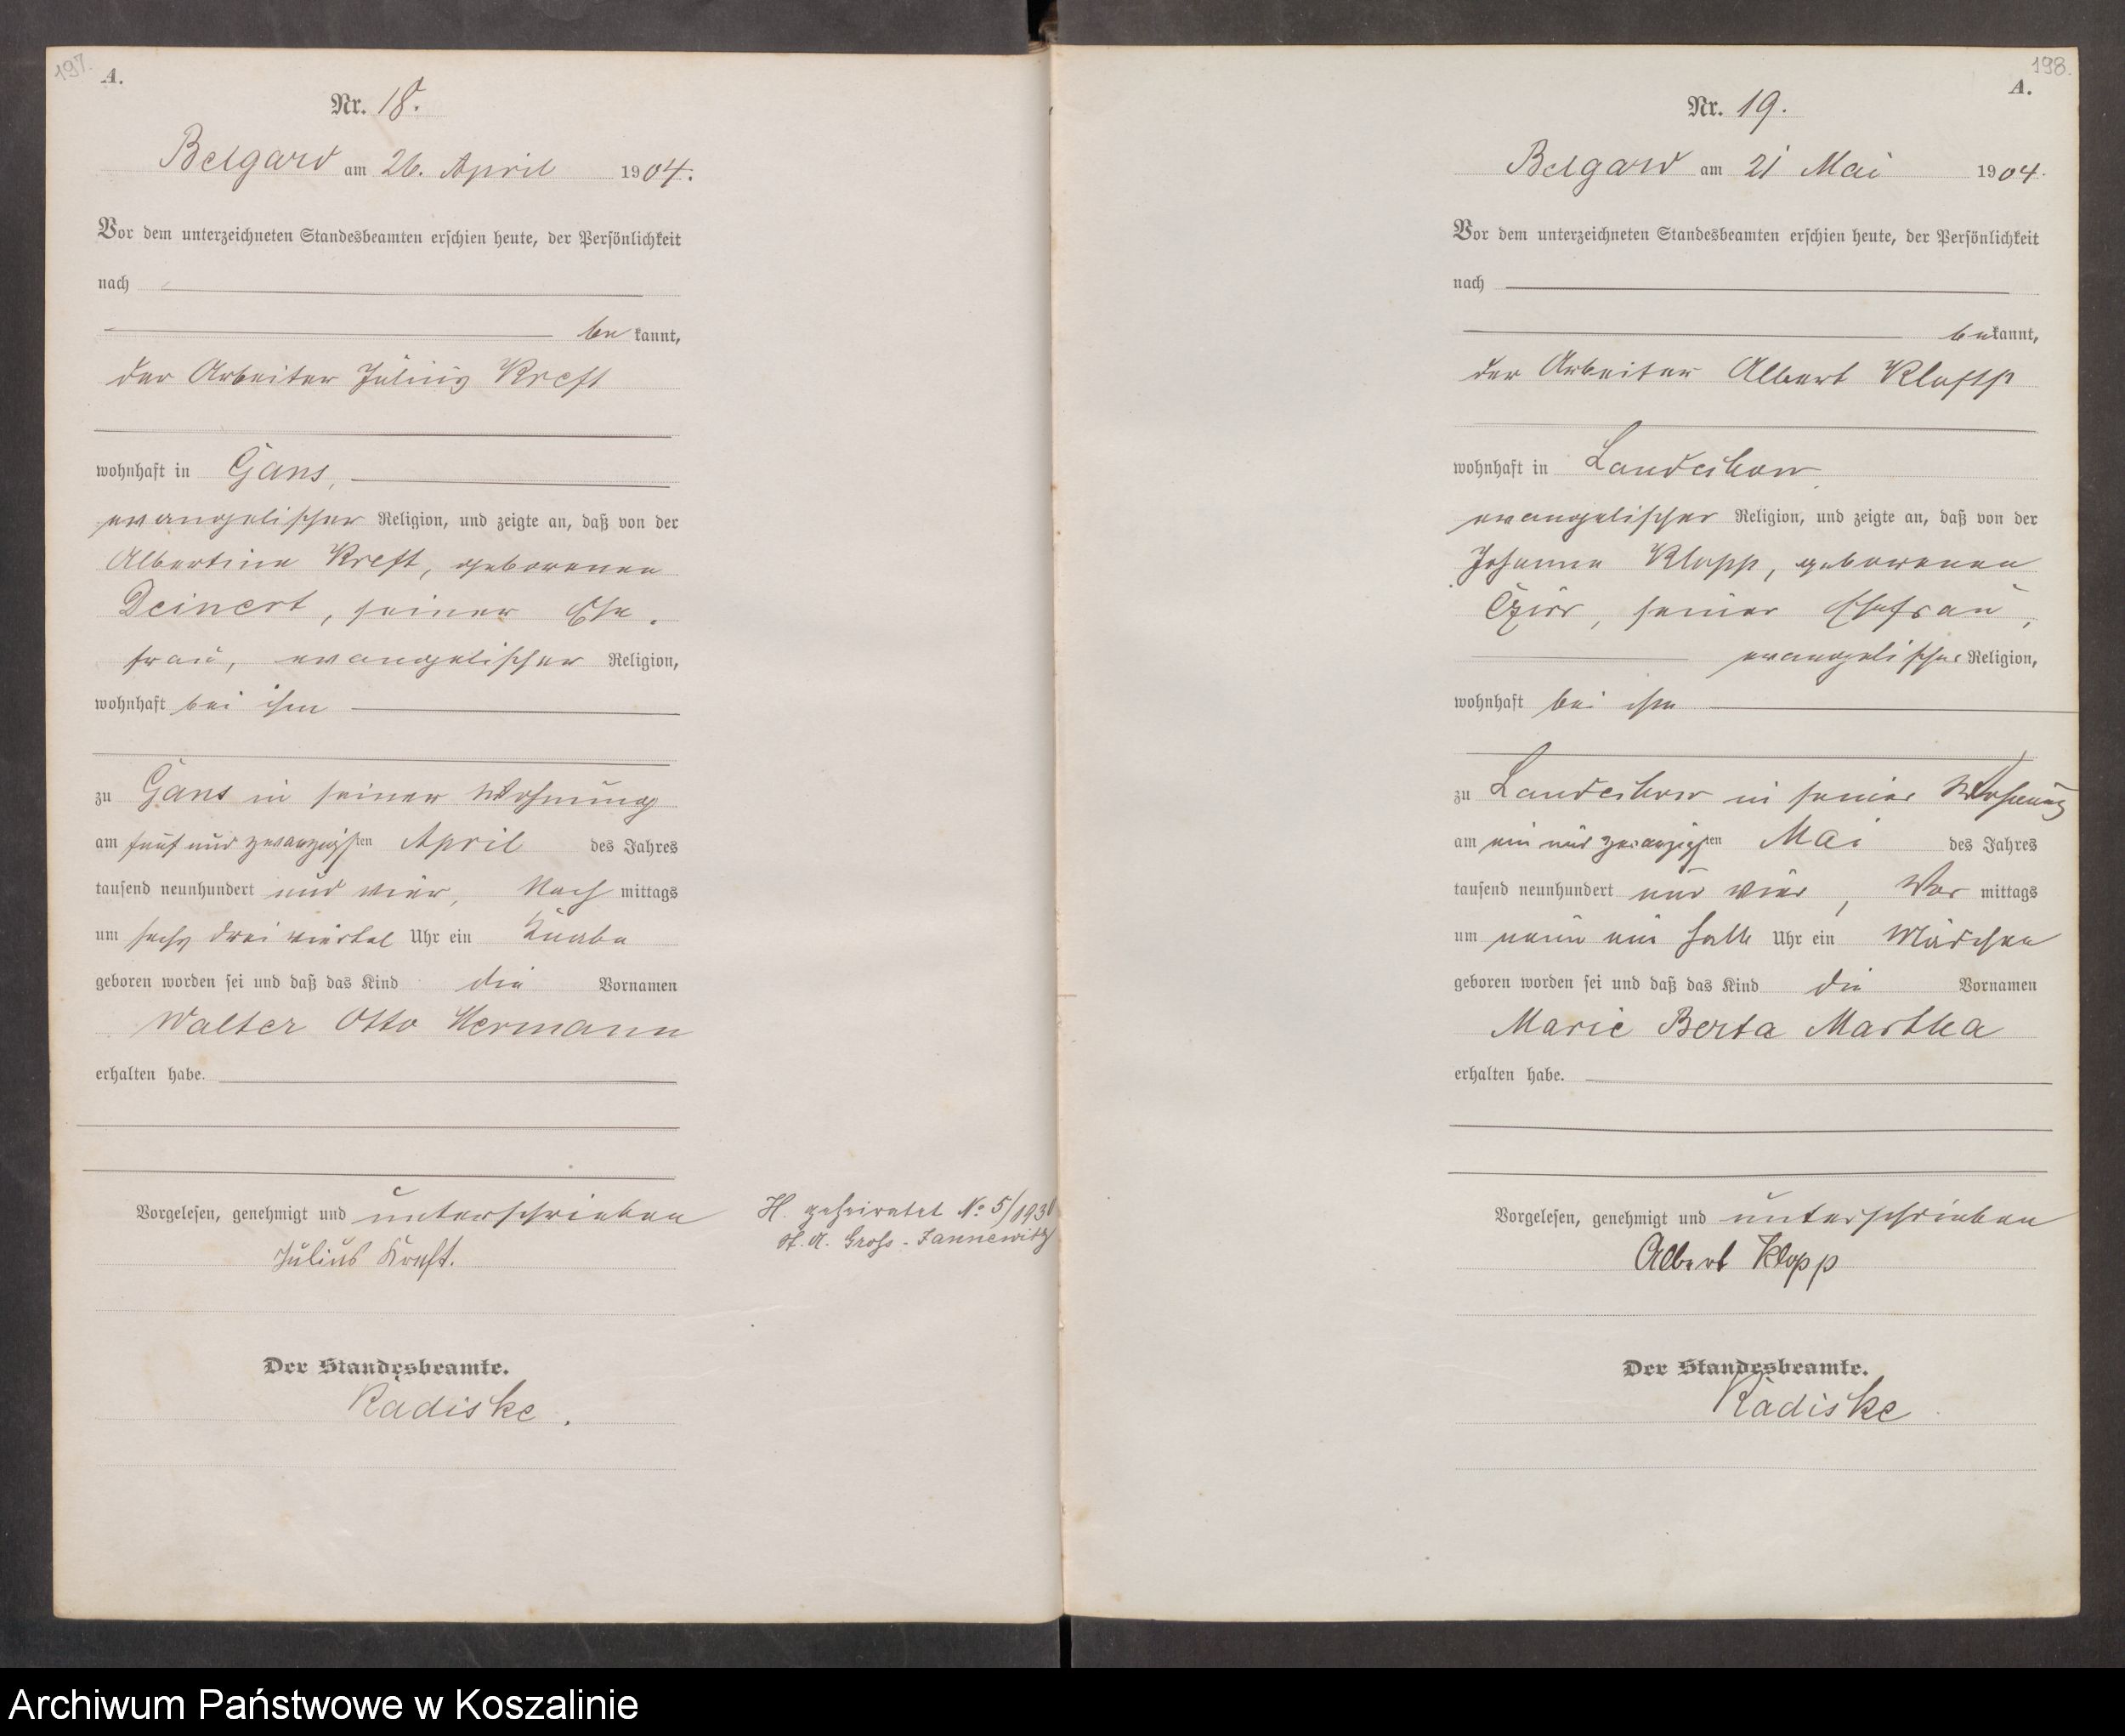 197.
A.
Nr. 18.
Belgard am 26. April 1904.
Vor dem unterzeichneten Standesbeamten erschien heute, der Persönlichkeit
nach
be kannt,
der Arbeiter Julius Kreft
wohnhaft in Gans,
evangelischer Religion, und zeigte an, daß von der
Albertine Kreft, geborenen
Deinert, seiner Ehe-
frau, evangelischer Religion,
wohnhaft bei ihm
zu Gans in seiner Wohnung
am fünf und zwanzigsten April des Jahres
tausend neunhundert und vier, Nach mittags
um sechs drei viertel Uhr ein Knabe
geboren worden sei und daß das Kind die Vornamen
Walter Otto Hermann
erhalten habe.
Vorgelesen, genehmigt und unterschrieben
Julius Kreft.
Der Standesbeamte.
Radiske.
H. geheiratet No 5/1930
St. A. Gross-Jannewitz
198.
A.
Nr. 19.
Belgard am 21 Mai 1904.
Vor dem unterzeichneten Standesbeamten erschien heute, der Persönlichkeit
nach
bekannt,
der Arbeiter Albert Klopp
wohnhaft in Landechow
evangelischer Religion, und zeigte an, daß von der
Johanne Klopp, geborenen
seiner Ehefrau,
evangelischer Religion,
wohnhaft bei ihm
zu Landechow in seiner Wohnung
am ein und zwanzigsten Mai des Jahres
tausend neunhundert und vier, Vor mittags
um neun ein halb Uhr ein Mädchen
geboren worden sei und daß das Kind die Vornamen
Marie Berta Martha
erhalten habe.
Vorgelesen, genehmigt und unterschrieben
Albert Klopp
Der Standesbeamte.
Radiske
Archiwum Państwowe w Koszalinie